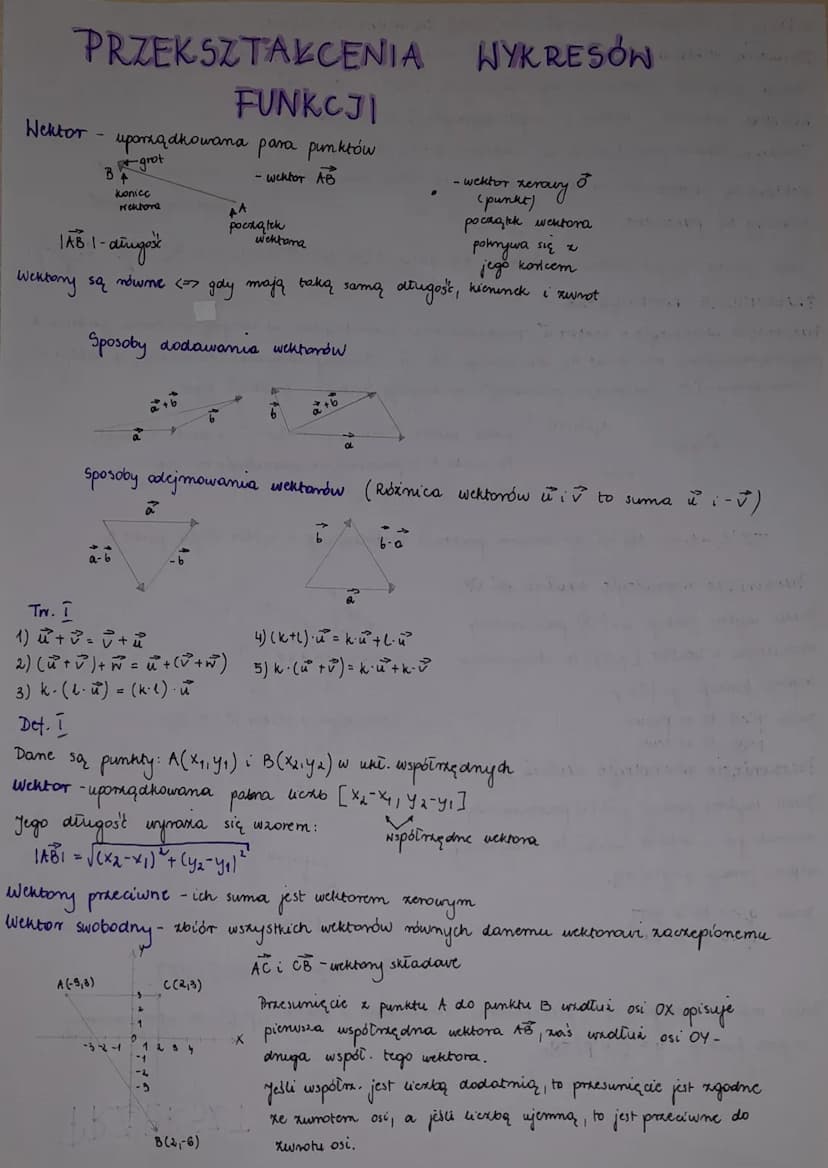 PRZEKSZTAŁCENIA WYKRESÓW
FUNKCJI
Wektor - uporządkowana para punktów
B grot
koniec
wektora
A
początek
wektora
- wektor A͞B⃗
- wektor zerowy 0⃗
(punkt)
początek wektora
pokrywa się z
jego końcem
|AB⃗| - długość
Wektory są równe <=> gdy mają taką samą długość, kierunek i zwrot
Sposoby dodawania wektorów
a⃗+b⃗ b⃗ a⃗
b⃗ a⃗+b⃗ a⃗
Sposoby odejmowania wektorów (Różnica wektorów u⃗ i v⃗ to suma u⃗ i -v⃗)
a⃗ a⃗-b⃗ -b⃗
b⃗ b⃗-a⃗ a⃗
Tw. I
1) u⃗+v⃗ = v⃗+u⃗
2) (u⃗+v⃗)+w⃗ = u⃗+(v⃗+w⃗)
3) k·(l·u⃗) = (k·l)·u⃗
4) (k+l)·u⃗ = k·u⃗+l·u⃗
5) k·(u⃗+v⃗) = k·u⃗+k·v⃗
Def. I
Dane są punkty: A(x₁,y₁) i B(x₂,y₂) w ukł. współrzędnych
Wektor - uporządkowana para liczb [x₂-x₁, y₂-y₁]
współrzędne wektora
Jego długość wyraża się wzorem:
|AB⃗| = √(x₂-x₁)²+(y₂-y₁)²
Wektory przeciwne - ich suma jest wektorem zerowym
Wektor swobodny - zbiór wszystkich wektorów równych danemu wektorowi zaczepionemu
y
A(-5,3) C(2,3)
3
2
1
-3 -2 -1 0 1 2 3 4 X
-1
-2
-3
B(2,-6)
AC⃗ i CB⃗ - wektory składowe
Przesunięcie z punktu A do punktu B wzdłuż osi OX opisuje
pierwsza współrzędna wektora AB⃗, zaś wzdłuż osi OY -
druga współ. tego wektora.
Jeśli współrz. jest liczbą dodatnią, to przesunięcie jest zgodne
ze zwrotem osi, a jeśli liczbą ujemną, to jest przeciwne do
zwrotu osi.